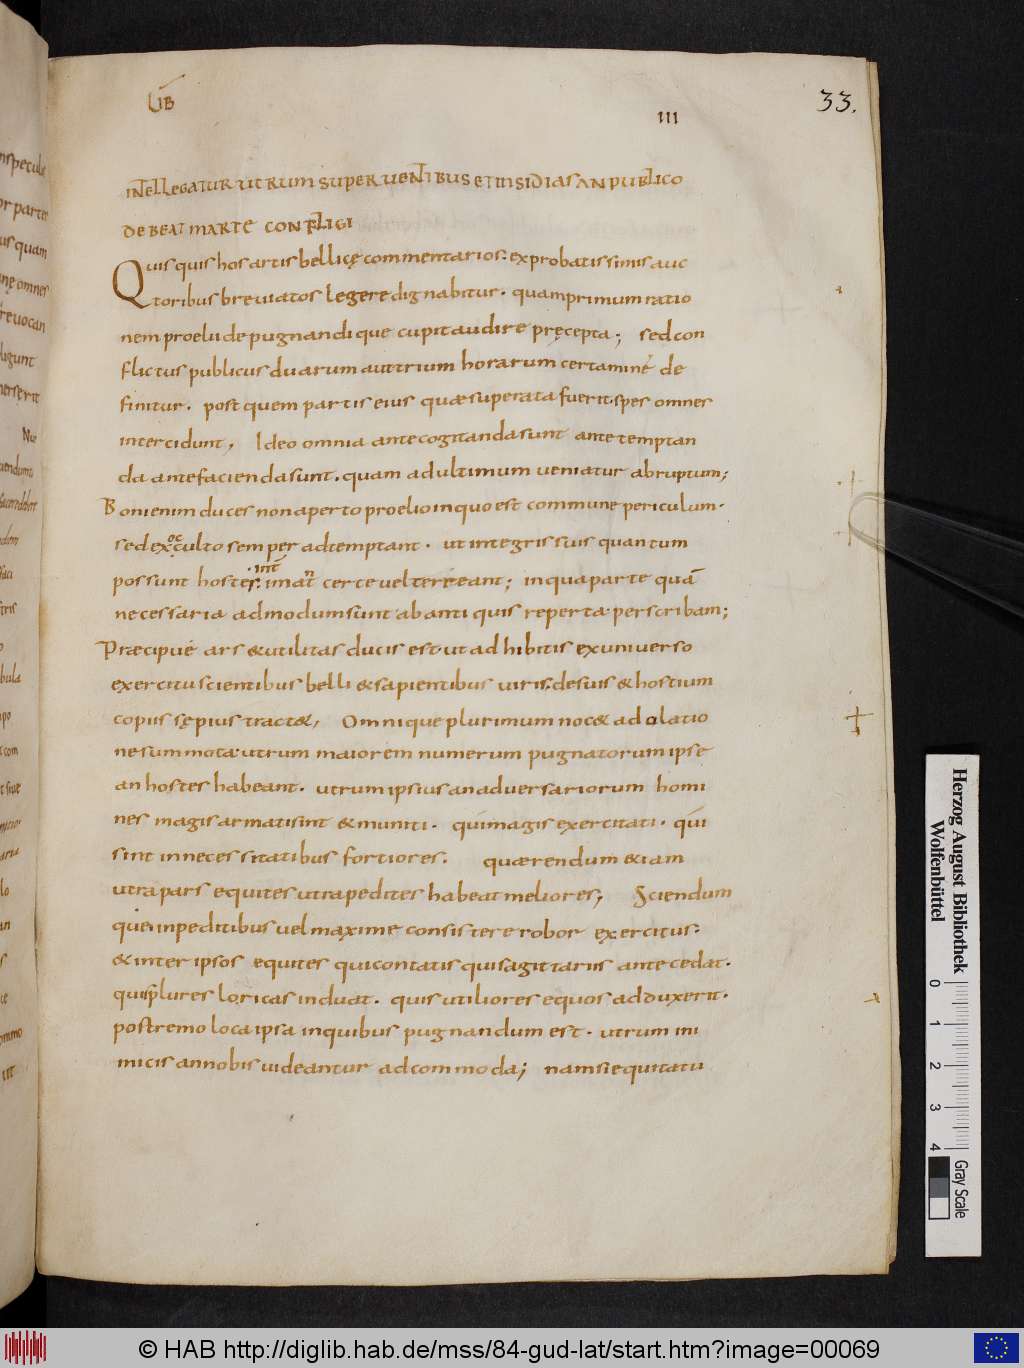 LIB
III
33.
INTELLEGATUR UTRUM SUPERVENTIBUS ET INSIDIAS AN PUBLICO
DEBEAT MARTE CONFLIGI
Quis quis hos artis bellicę commentarios. ex probatissimis auc
toribus breviatos legere dignabitur. quam primum ratio
nem proelii depugnandi que cupit audire pręcepta; sed con
flictus publicus duarum aut trium horarum certamine de
finitur. post quem partis eius quae superata fuerit spes omnes
intercidunt, Ideo omnia ante cogitanda sunt ante temptan
da ante facienda sunt. quam ad ultimum veniatur abruptum;
Boni enim duces non aperto proelio in quo est commune periculum.
sed ex occulto semper adtemptant. ut integris suis quantum
int
possunt hostes. imant certe vel terreeant; in qua parte quā
necessaria admodum sunt ab antiquis reperta perscribam;
Praecipue ars & utilitas ducis est ut adhibitis ex universo
exercitu scientibus belli & sapientibus viris. de suis & hostium
copiis sępius tract&, Omnique plurimum noc& adolatio
ne summota utrum maiorem numerum pugnatorum ipse
an hostes habeant. utrum ipsius an adversariorum homi
nes magis armati sint & muniti. qui magis exercitati. qui
sint in necessitatibus fortiores. quaerendum &iam
utra pars equites utra pedites habeat meliores; Sciendum
que inpeditibus vel maxime consistere robor exercitus.
& inter ipsos equites qui contatis quis agittariis antecedat.
quis plures loricas induat. quis utiliores equos adduxerit.
postremo loca ipsa in quibus pugnandum est. utrum ini
micis an nobis videantur adcommoda; nam si equitatu
Herzog August Bibliothek
Wolfenbüttel
0 1 2 3 4
Gray Scale
© HAB http://diglib.hab.de/mss/84-gud-lat/start.htm?image=00069